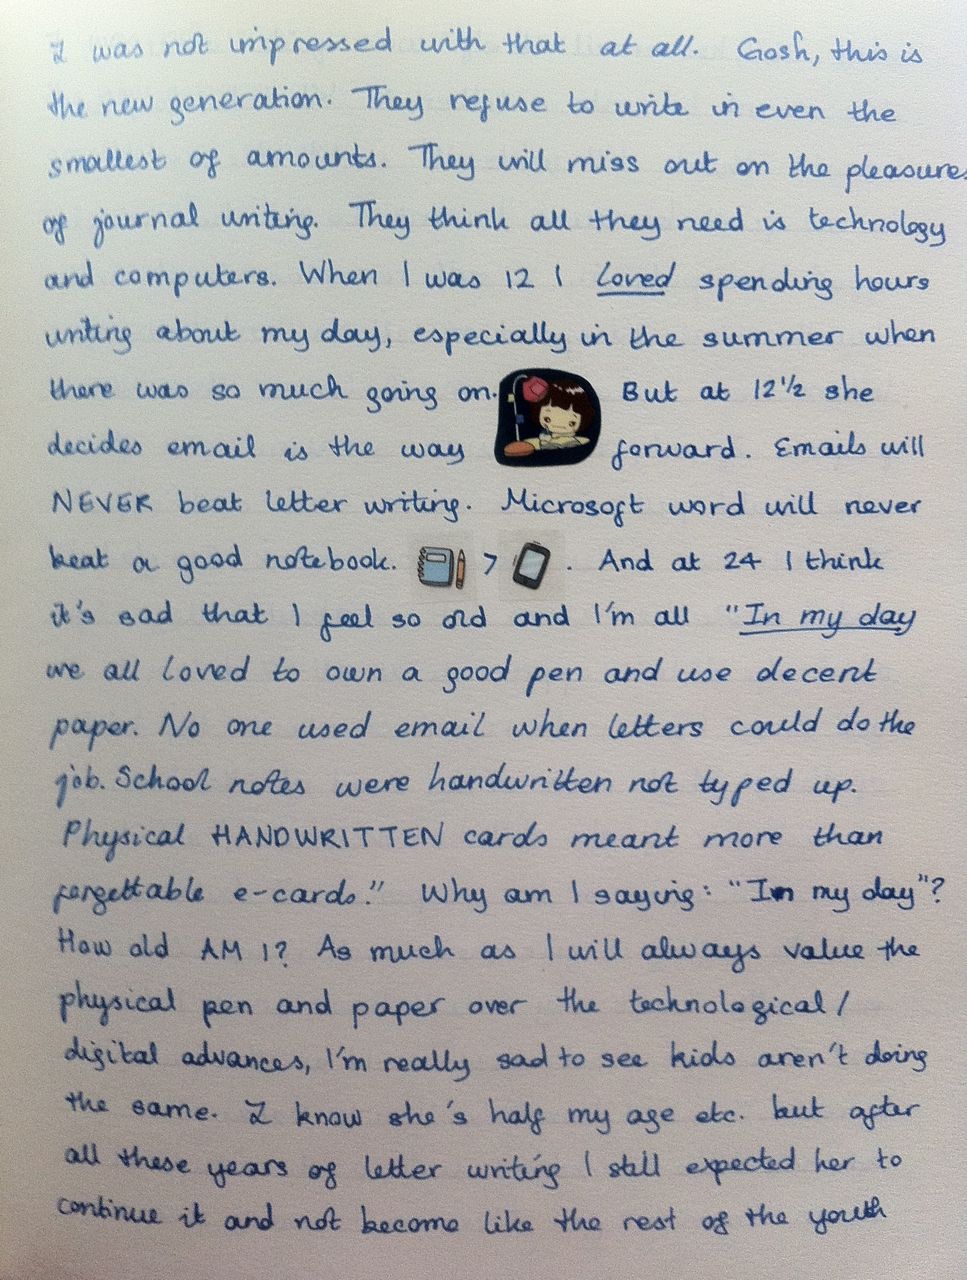 I was not impressed with that at all. Gosh, this is
the new generation. They refuse to write in even the
smallest of amounts. They will miss out on the pleasures
of journal writing. They think all they need is technology
and computers. When I was 12 I loved spending hours
writing about my day, especially in the summer when
there was so much going on. But at 12½ she
decides email is the way forward. Emails will
NEVER beat letter writing. Microsoft word will never
beat a good notebook. > . And at 24 I think
it's sad that I feel so old and I'm all "In my day
we all loved to own a good pen and use decent
paper. No one used email when letters could do the
job. School notes were handwritten not typed up.
Physical HANDWRITTEN cards meant more than
forgettable e-cards." Why am I saying: "In my day"?
How old AM I? As much as I will always value the
physical pen and paper over the technological/
digital advances, I'm really sad to see kids aren't doing
the same. I know she's half my age etc. but after
all these years of letter writing I still expected her to
continue it and not become like the rest of the youth